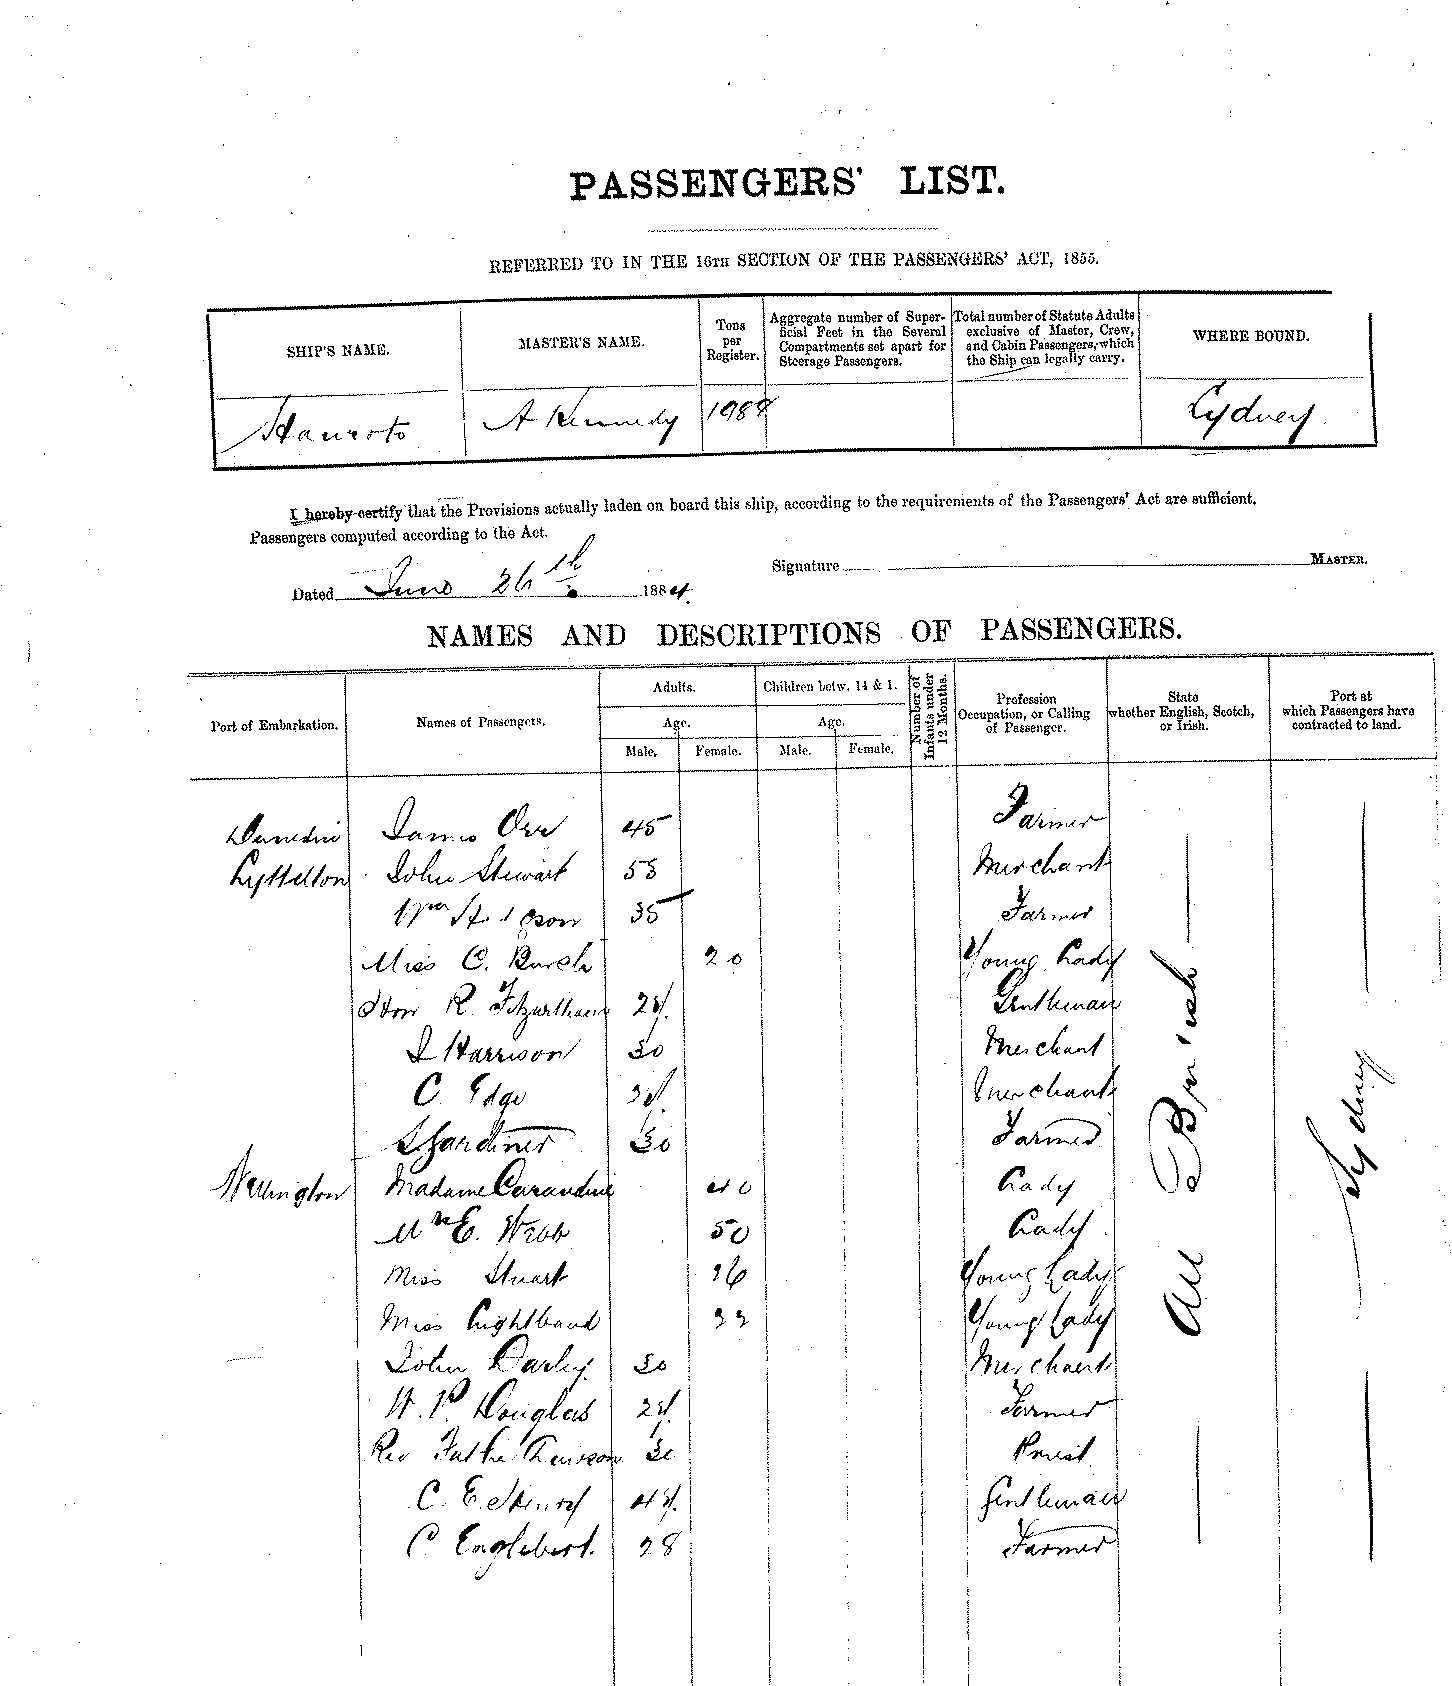 PASSENGERS' LIST.
REFERRED TO IN THE 16TH SECTION OF THE PASSENGERS' ACT, 1855.
SHIP'S NAME. MASTER'S NAME. Tons per Register. Aggregate number of Superficial Feet in the Several Compartments set apart for Steerage Passengers. Total number of Statute Adults exclusive of Master, Crew, and Cabin Passengers, which the Ship can legally carry. WHERE BOUND.
Hauroto A Kennedy 1988 Sydney
I hereby certify that the Provisions actually laden on board this ship, according to the requirements of the Passengers' Act are sufficient.
Passengers computed according to the Act.
Signature MASTER.
Dated June 26th 1884.
NAMES AND DESCRIPTIONS OF PASSENGERS.
Port of Embarkation. Names of Passengers. Adults. Age. Male. Female. Children betw. 14 & 1. Age. Male. Female. Number of Infants under 12 Months. Profession Occupation, or Calling of Passenger. State whether English, Scotch, or Irish. Port at which Passengers have contracted to land.
Dunedin James Orr 45 Farmer
Lyttelton John Stewart 53 Merchant
Wm 35 Farmer
Miss C. Burch 20 Young Lady
Hon R. 24 Gentleman
J Harrison 30 Merchant
C. Edge 24 Merchant
S Gardiner 30 Farmer
Wellington Madame Carandini 40 Lady
Mrs E. Webb 50 Lady
Miss Stuart 26 Young Lady
Miss Lightband 22 Young Lady
John Darby 30 Merchant
W. P. Douglas 24 Farmer
Rev Father 30 Priest
C. E. Henry 44 Gentleman
C Englebert. 28 Farmer
All British
Sydney